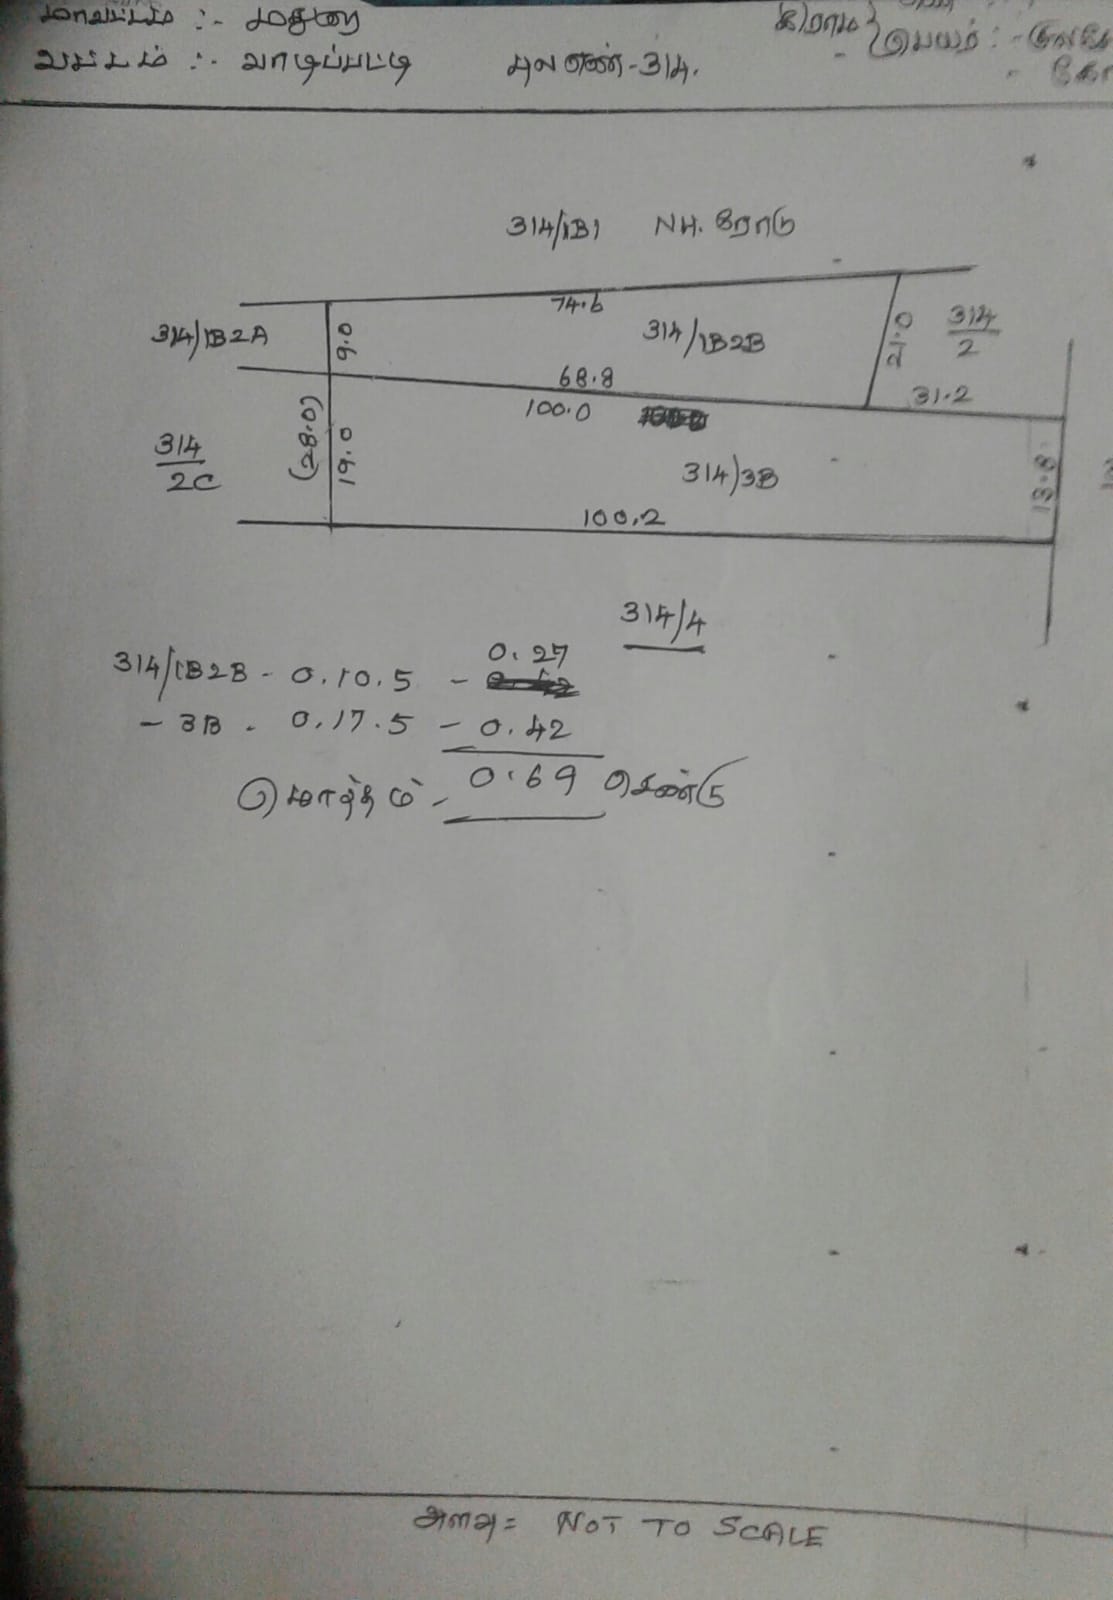 மாவட்டம் :- மதுரை
வட்டம் :- வாடிப்பட்டி புல எண்-314.
கிராம பெயர் :-
314/1B1 NH. ரோடு
74.6
314/1B2A 9.0 314/1B2B 21.0 314/2
68.8
31.2
100.0
(28.0)
314/2C 19.0 314/3B 13.8
100.2
314/4
0.27
314/1B2B - 0.10.5 -
- 3B - 0.17.5 - 0.42
மொத்தம் - 0.69 செண்டு
அளவு = NOT TO SCALE